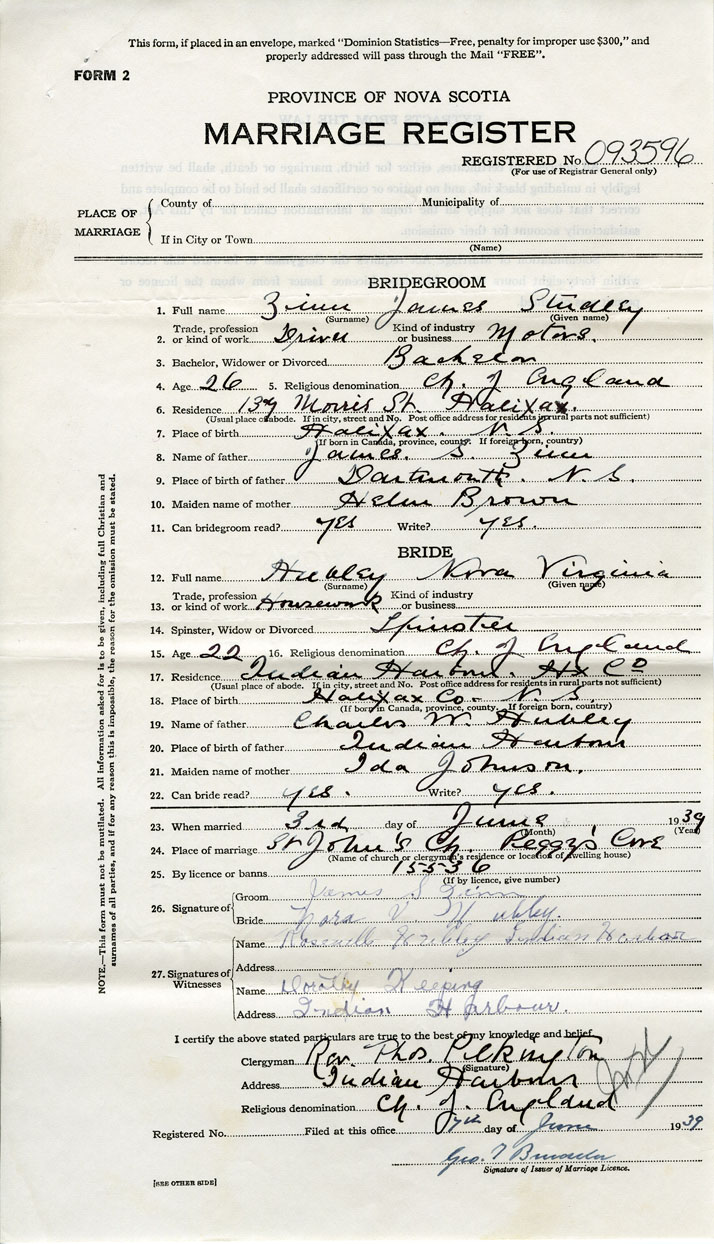 This form, if placed in an envelope, marked "Dominion Statistics—Free, penalty for improper use $300," and
properly addressed will pass through the Mail "FREE".
FORM 2
PROVINCE OF NOVA SCOTIA
MARRIAGE REGISTER
REGISTERED No. 093596
(For use of Registrar General only)
PLACE OF MARRIAGE
County of Municipality of
If in City or Town
(Name)
BRIDEGROOM
1. Full name Zinn James Studley
(Surname) (Given name)
2. Trade, profession or kind of work Driver Kind of industry or business Motors.
3. Bachelor, Widower or Divorced Bachelor
4. Age 26 5. Religious denomination Ch. of England
6. Residence 139 Morris St. Halifax.
(Usual place of abode. If in city, street and No. Post office address for residents in rural parts not sufficient)
7. Place of birth Halifax. N.S.
(If born in Canada, province, county. If foreign born, country)
8. Name of father James. S. Zinn
9. Place of birth of father Dartmouth. N.S.
10. Maiden name of mother Helen Brown
11. Can bridegroom read? yes Write? yes.
BRIDE
12. Full name Hubley Nora Virginia
(Surname) (Given name)
13. Trade, profession or kind of work Housework Kind of industry or business
14. Spinster, Widow or Divorced Spinster
15. Age 22 16. Religious denomination Ch. of England
17. Residence Indian Harbour. Hx Co
(Usual place of abode. If in city, street and No. Post office address for residents in rural parts not sufficient)
18. Place of birth Halifax Co. N.S.
(If born in Canada, province, county. If foreign born, country)
19. Name of father Charles W. Hubley
20. Place of birth of father Indian Harbour
21. Maiden name of mother Ida Johnson.
22. Can bride read? yes. Write? yes.
23. When married 3rd day of June 1939
(Month) (Year)
24. Place of marriage St John's Ch. Peggy's Cove
(Name of church or clergyman's residence or location of dwelling house)
25. By licence or banns 15536
(If by licence, give number)
26. Signature of
Groom James S Zinn
Bride Nora V. Hubley.
27. Signatures of Witnesses
Name Hubley Indian Harbour
Address
Name Keeping
Address Indian Harbour.
I certify the above stated particulars are true to the best of my knowledge and belief.
Clergyman Rev. Thos. Pilkington
(Signature)
Address Indian Harbour
Religious denomination Ch. of England
Registered No. Filed at this office 7th day of June 1939
Geo. T
Signature of Issuer of Marriage Licence.
[SEE OTHER SIDE]
NOTE.—This form must not be mutilated. All information asked for is to be given, including full Christian and
surnames of all parties, and if for any reason this is impossible, the reason for the omission must be stated.